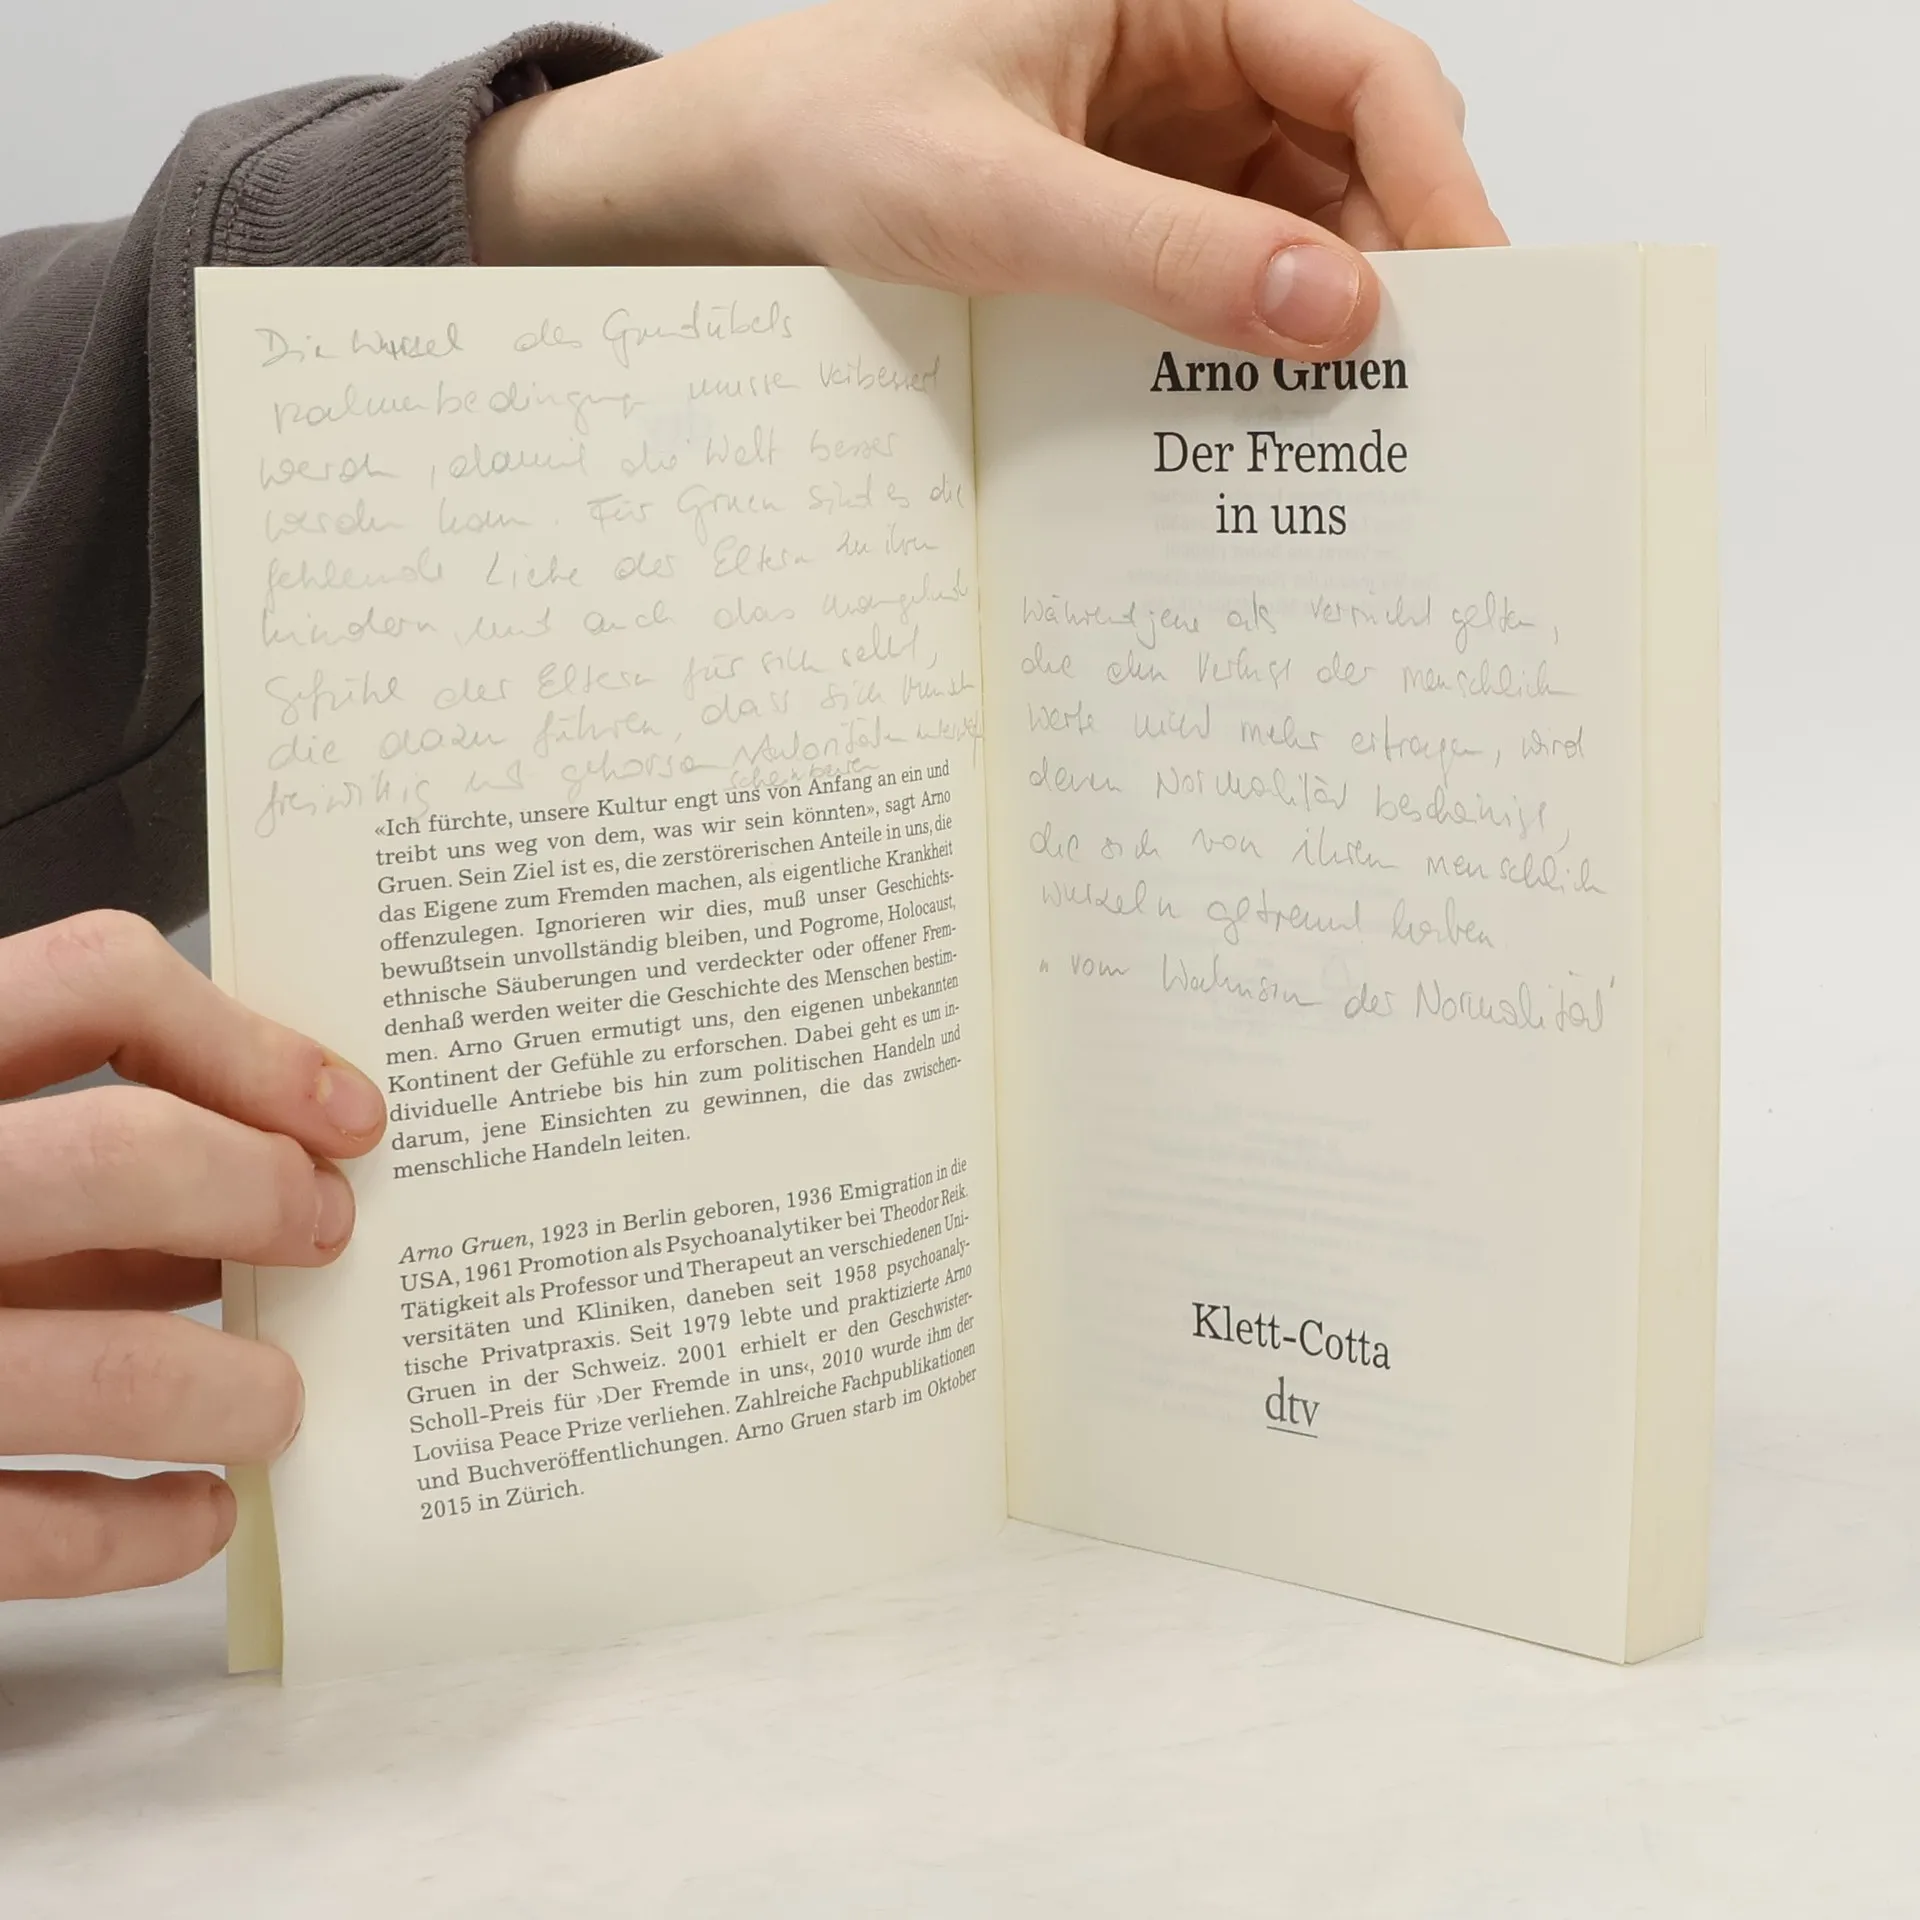 Die Wurzel des Grundübels
Rahmenbedingungen müssen verbessert
werden, damit die Welt besser
werden kann. Für Gruen sind es die
fehlende Liebe der Eltern zu ihren
Kindern, und auch das mangelnde
Gefühl der Eltern für sich selbst,
die dazu führen, dass sich Menschen
freiwillig und gehorsam Autoritäten
scheinbaren
«Ich fürchte, unsere Kultur engt uns von Anfang an ein und
treibt uns weg von dem, was wir sein könnten», sagt Arno
Gruen. Sein Ziel ist es, die zerstörerischen Anteile in uns, die
das Eigene zum Fremden machen, als eigentliche Krankheit
offenzulegen. Ignorieren wir dies, muß unser Geschichts-
bewußtsein unvollständig bleiben, und Pogrome, Holocaust,
ethnische Säuberungen und verdeckter oder offener Frem-
denhaß werden weiter die Geschichte des Menschen bestim-
men. Arno Gruen ermutigt uns, den eigenen unbekannten
Kontinent der Gefühle zu erforschen. Dabei geht es um in-
dividuelle Antriebe bis hin zum politischen Handeln und
darum, jene Einsichten zu gewinnen, die das zwischen-
menschliche Handeln leiten.
Arno Gruen, 1923 in Berlin geboren, 1936 Emigration in die
USA, 1961 Promotion als Psychoanalytiker bei Theodor Reik.
Tätigkeit als Professor und Therapeut an verschiedenen Uni-
versitäten und Kliniken, daneben seit 1958 psychoanaly-
tische Privatpraxis. Seit 1979 lebte und praktizierte Arno
Gruen in der Schweiz. 2001 erhielt er den Geschwister-
Scholl-Preis für ›Der Fremde in uns‹, 2010 wurde ihm der
Loviisa Peace Prize verliehen. Zahlreiche Fachpublikationen
und Buchveröffentlichungen. Arno Gruen starb im Oktober
2015 in Zürich.
Arno Gruen
Der Fremde
in uns
Während jene als verrückt gelten,
die den Verlust der menschlichen
Werte nicht mehr ertragen, wird
denen Normalität bescheinigt,
die sich von ihren menschlichen
Wurzeln getrennt haben
"Vom Wahnsinn der Normalität"
Klett-Cotta
dtv